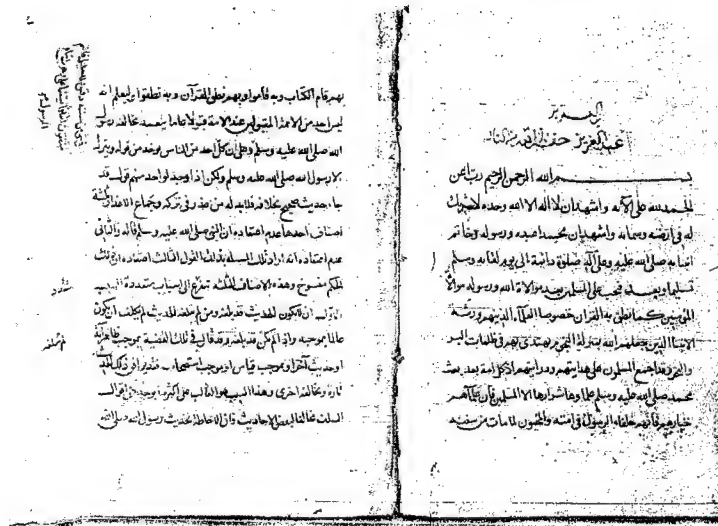 بســـــم الله الرحمن الرحيم رب اعن
الحمد لله على الآئه واشهد ان لا اله الا الله وحده لا شريك
له في ارضه وسمائه واشهد ان محمدا عبده ورسوله وخاتم
انبيائه صلى الله عليه وعلى آله صلوة دائمة الى يوم لقائه وسلم
تسليما وبعد فيجب على المسلمين بعد موالاة الله ورسوله موالاة
المؤمنين كما نطق به القران خصوصا العلماء الذين هم ورثة
الانبيا الذين جعلهم الله بمنزلة النجوم يهتدى بهم في ظلمات البر
والبحر وقد اجمع المسلمون على هدايتهم ودرايتهم اذ كل امة بعد بعث
محمد صلى الله عليه وسلم علماوها شرارها الا المسلمين فان علمآهم
خيارهم فانهم خلفاء الرسول في امته والمحيون لما مات من سنته
بهم قام الكتاب وبه قاموا وبهم نطق القرآن وبه نطقوا وليعلم انه
ليس احد من الائمة المقبولين عند الامة قبولا عاما يتعمد مخالفة رسول
الله صلى الله عليه وسلم وعلى ان كل احد من الناس يوخذ من قوله ويترك
الا رسول الله صلى الله عليه وسلم ولكن اذا وجد لواحد منهم قول قد
جاء حديث صحيح بخلافه فلا بد له من عذر في تركه وجماع الاعذار ثلثة
اصناف احدها عدم اعتقاده ان النبي صلى الله عليه وسلم قاله والثاني
عدم اعتقاده انه اراد تلك المسئلة بذلك القول الثالث اعتقاده ان ذلك
الحكم منسوخ وهذه الاصناف الثلثة تتفرع الى اسباب متعددة السبب
الاول ان لا يكون الحديث قد بلغه ومن لم يبلغه الحديث لم يكلف ان يكون
عالما بموجبه واذا لم يكن قد بلغه وقد قال في تلك القضية بموجب ظاهر آية
او حديث آخر او بموجب قياس او بموجب استصحاب فقد يوافق ذلك الحديث
تارة ويخالفه اخرى وهذا السبب هو الغالب على اكثر ما يوجد من اقوال
السلف مخالفا لبعض الاحاديث فان الاحاطة بحديث رسول الله صلى الله